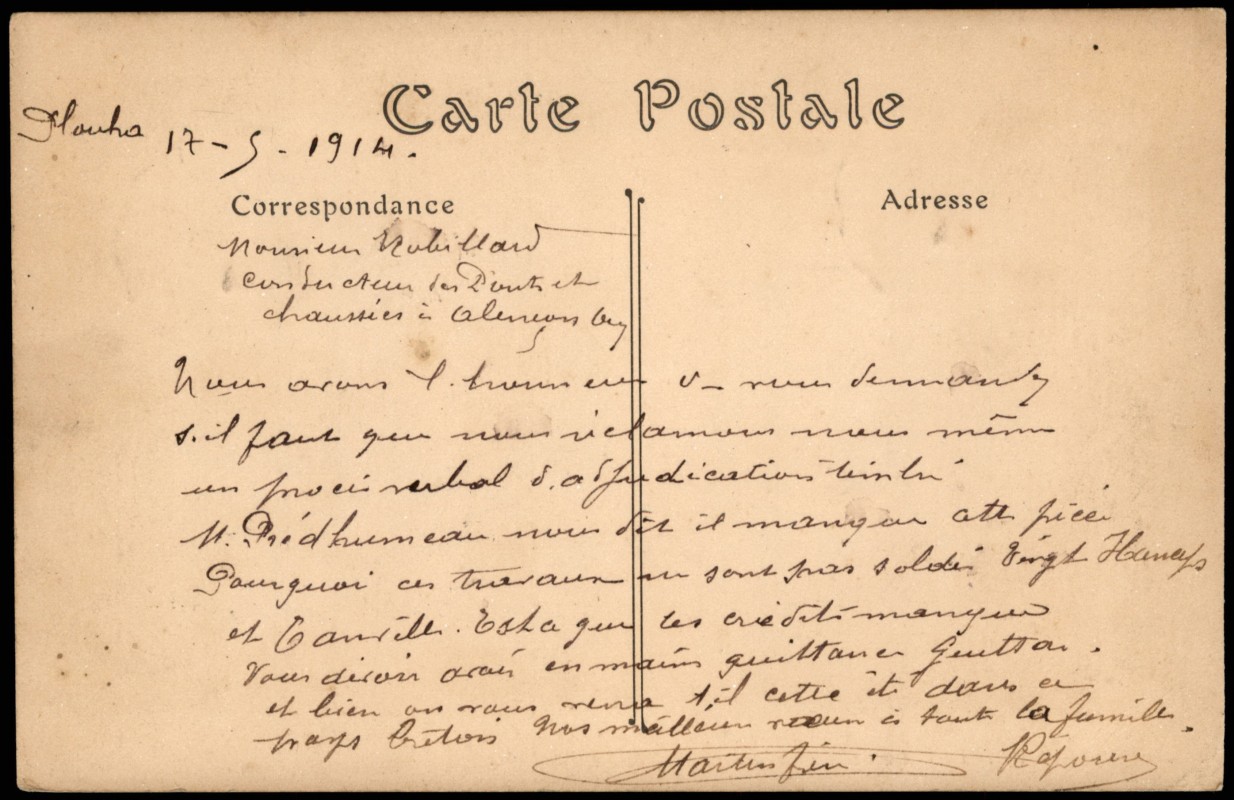 Carte Postale
Plouha 17-5-1914.
Correspondance
Adresse
Monsieur Robillard
conducteur des Ponts et
chaussées à Alençon
Nous avons l.honneur d_ vous demander
s.il faut que nous réclamons nous même
un procès verbal d.adjudication timbré
M. Prédhumeau nous dit il manque cette pièce
Pourquoi ces travaux ne sont pas soldés Vingt Hanaps
et Tanville. Est ce que les crédits manque
Vous devoir avoir en mains quittance
et bien on vous verra t,il cette été dans ce
pays Bretois Nos meilleur à toute la famille.
Martin
Réponse